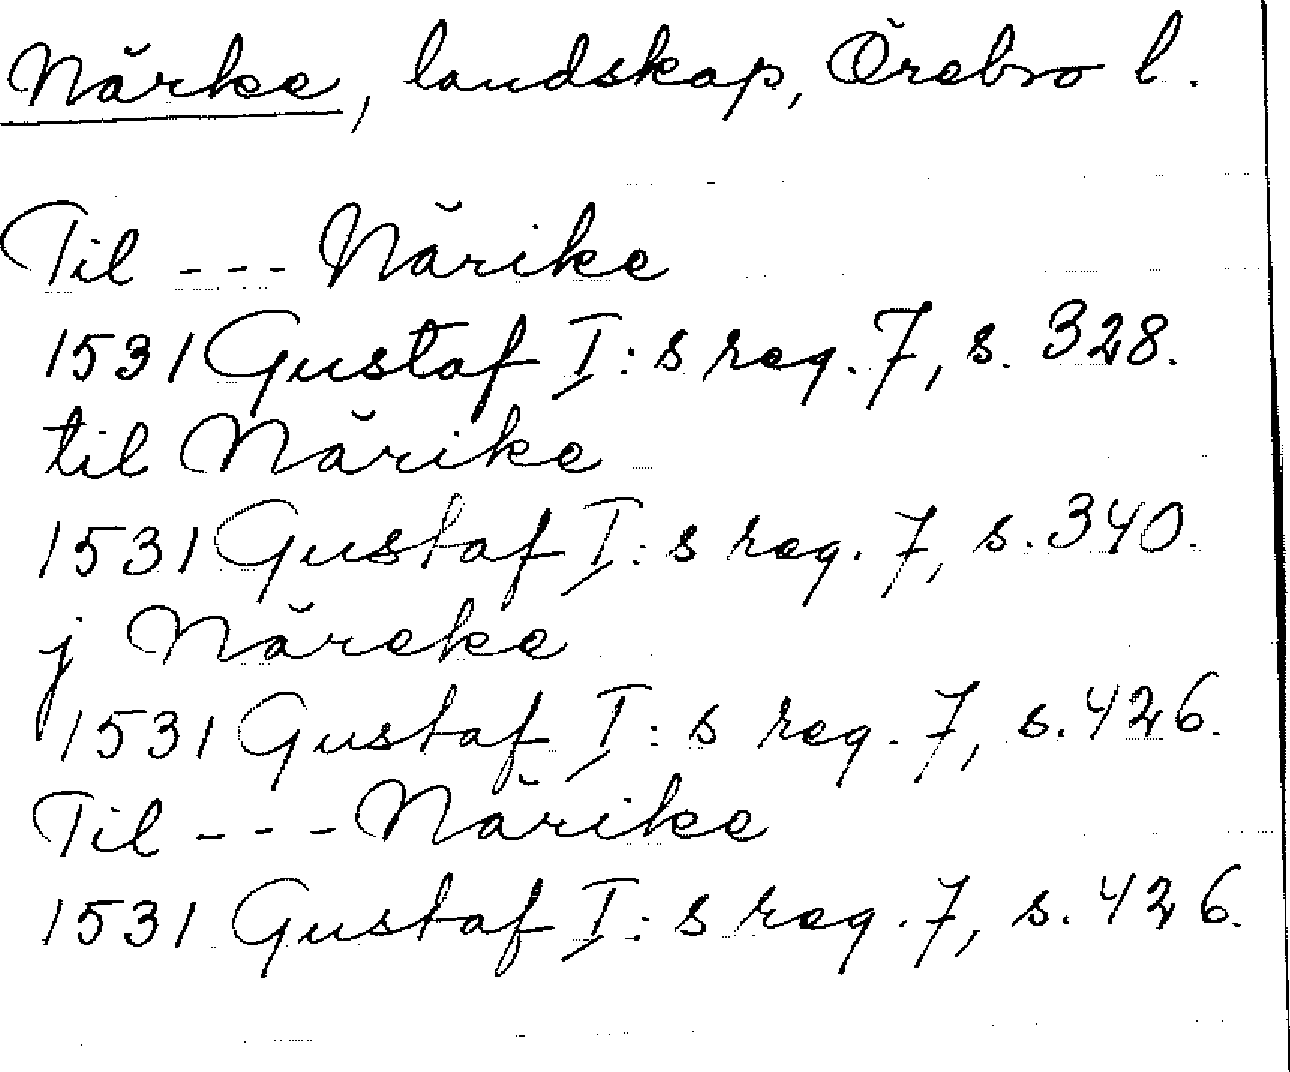 Närke, landskap, Örebro l.
Til --- Närike
1531 Gustaf I:s reg. 7, s. 328.
til Närike
1531 Gustaf I:s reg. 7, s. 340.
j Näreke
1531 Gustaf I:s reg. 7, s. 426.
Til --- Närike
1531 Gustaf I:s reg. 7, s. 426.